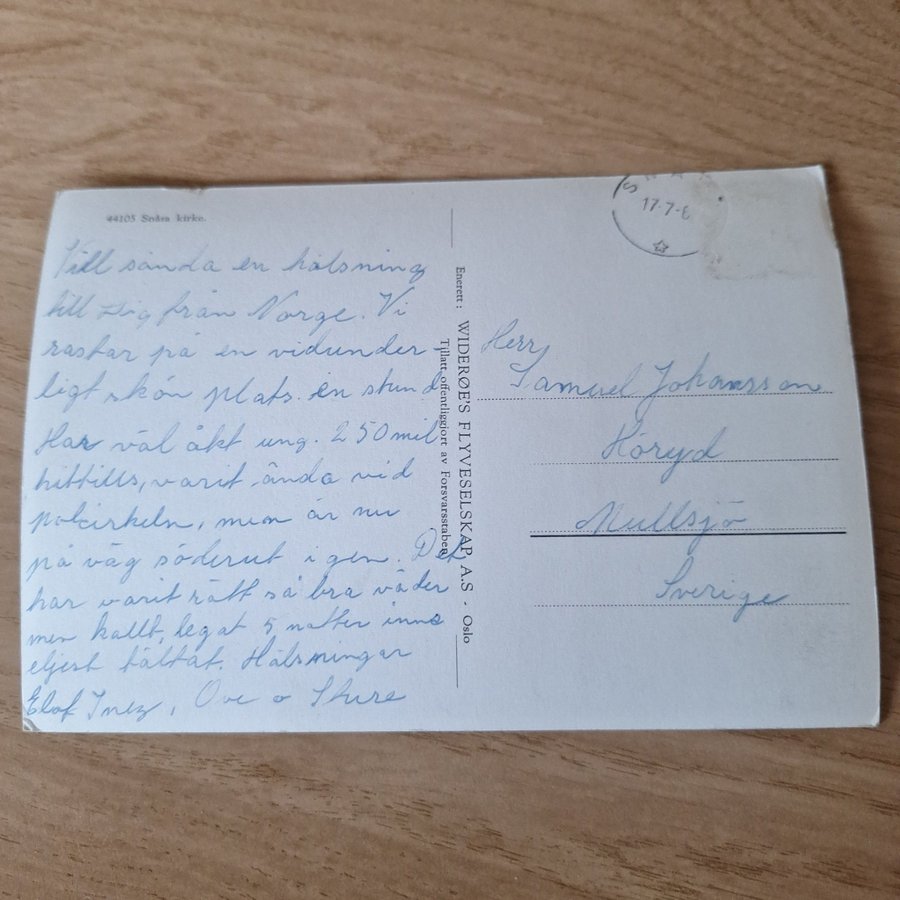 44105 Snåsa kirke.
Vill sända en hälsning
till Dig från Norge. Vi
rastar på en vidunder-
ligt skön plats en stund
Har väl åkt ung. 250 mil
hittills, varit ända vid
polcirkeln, men är nu
på väg söderut igen. Det
har varit rätt så bra väder
men kallt, legat 5 nätter inne
eljest tältat. Hälsningar
Elof Inez, Ove o Sture
Enerett: WIDERØE'S FLYVESELSKAP A.S - Oslo
Tillatt offentliggjort av Forsvarsstaben
17-7-6
Herr
Samuel Johansson
Höryd
Mullsjö
Sverige